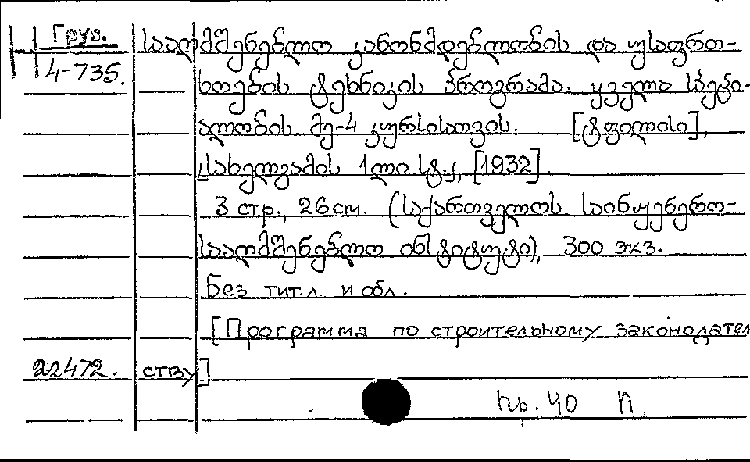 Груз. სააღმშენებლო კანონმდებლობის და უსაფრთ-
4-735. ხოების ტეხნიკის პროგრამა. ყველა სპეცი-
ალობის მე-4 კურსისათვის. [ტფილისი],
სახელგამის 1ლი სტ., [1932].
3 стр., 26 cm. (საქართველოს საინჟენერო-
სააღმშენებლო ინსტიტუტი), 300 экз.
Без тит.л. и обл.
[Программа по строительному законодатель
22472. ству]
40 П